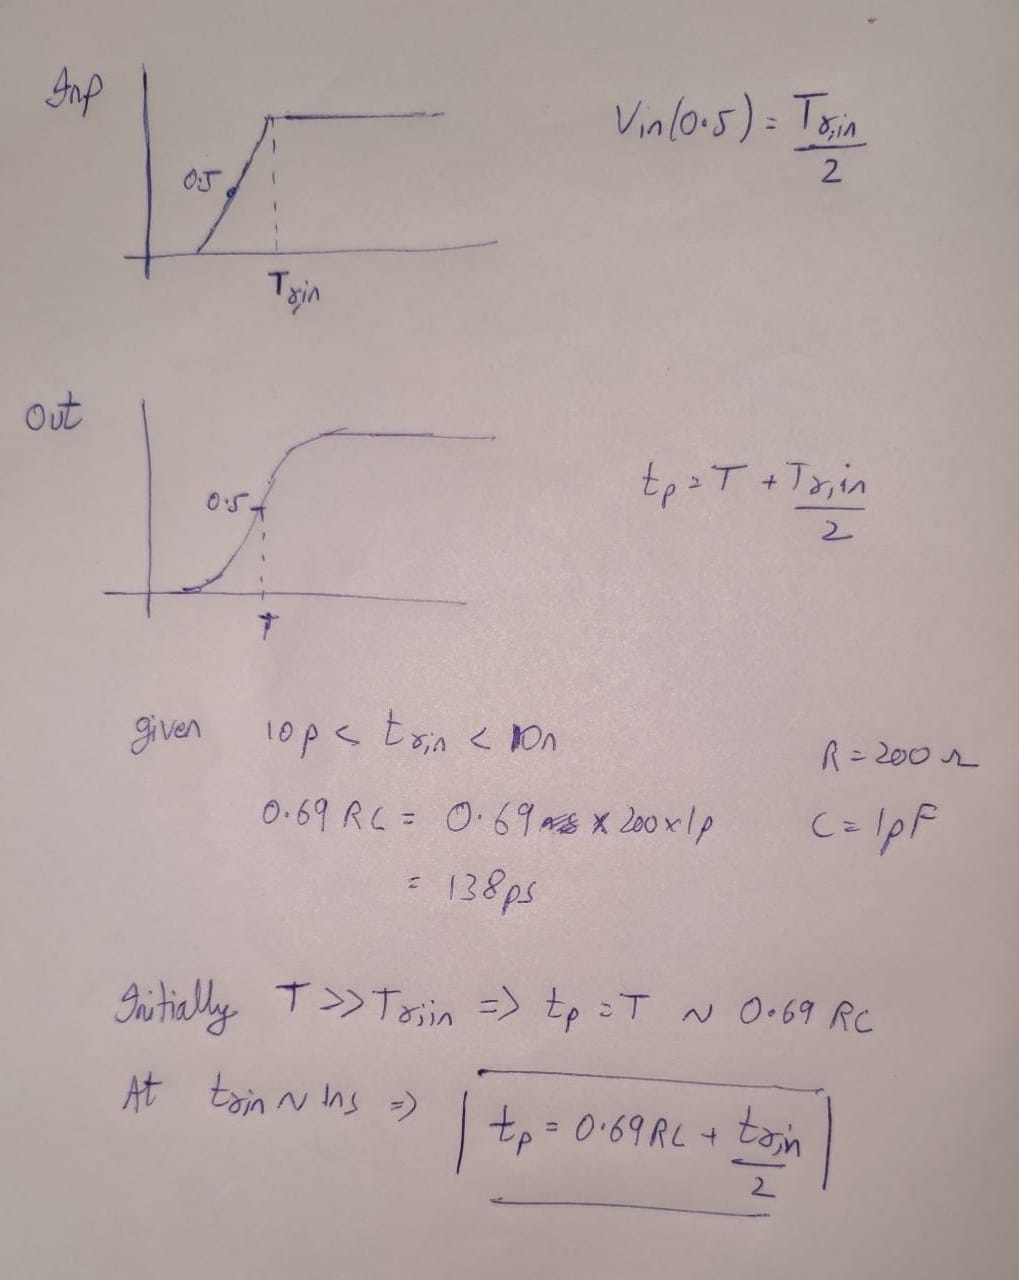 Inp
Vin(0.5) = Tr,in/2
0.5
Tr,in
Out
tp = T + Tr,in/2
0.5
T
given 10p < tr,in < 10n
R = 200 Ω
0.69 RC = 0.69 × 200 × 1p
C = 1pF
= 138ps
Initially T >> Tr,in => tp = T ~ 0.69 RC
At tr,in ~ 1ns => tp = 0.69RC + tr,in/2